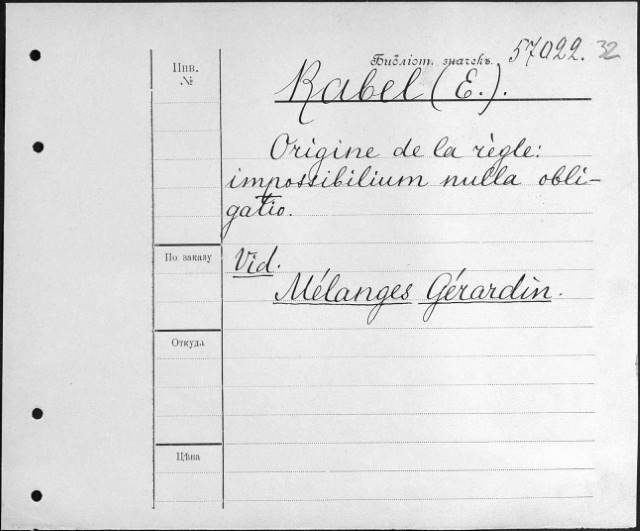 Инв.
№
Библіот. значекъ.
57022. 32
Rabel (E.).
Origine de la règle:
impossibilium nulla obli-
gatio.
По заказу
Vid.
Mélanges Gérardin.
Откуда
Цѣна